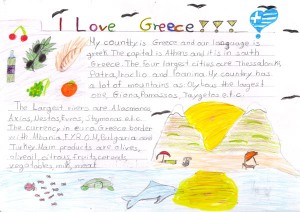 I Love Greece!!!
My country is Greece and our language is
greek. The capital is Athens and it is in south
Greece. The four largest cities are Thessaloniki,
Patra, Iraclio and Ioanina. My country has
a lot of mountains as Olympus the largest
one, Giona, Parnassos, Taygetos etc.
The Largest rivers are Aliacmonas,
Axios, Nestos, Evros, Strymonas etc.
The currency in euro. Greece border
with Albania, F.Y.R.O.M, Bulgaria and
Turkey. Main products are olives,
oliveoil, citrous fruits, cereals,
vegetables, milk, meat.